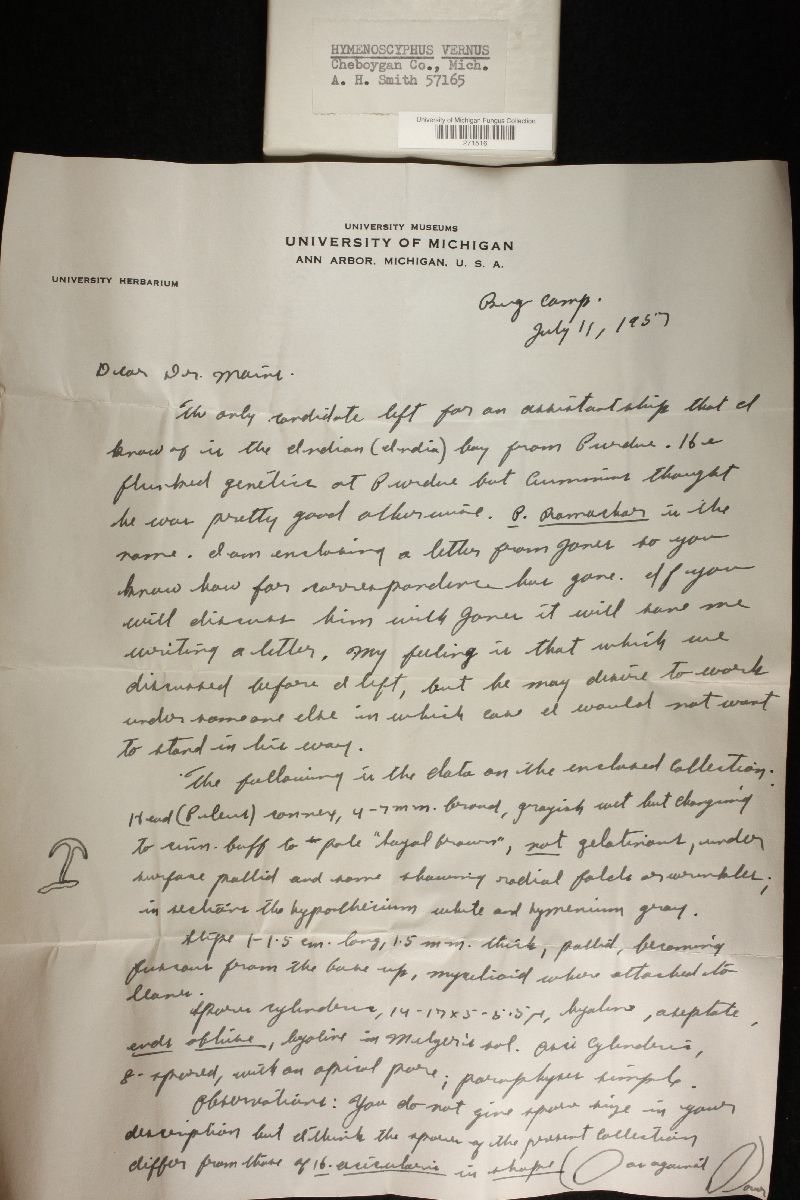 HYMENOSCYPHUS VERNUS
Cheboygan Co., Mich.
A. H. Smith 57165
University of Michigan Fungus Collection
271516
UNIVERSITY MUSEUMS
UNIVERSITY OF MICHIGAN
ANN ARBOR, MICHIGAN, U. S. A.
UNIVERSITY HERBARIUM
Bug Camp.
July 11, 1957
Dear Dr. Mains.
The only candidate left for an assistantship that I
know of is the Indian (India) boy from Purdue. He
flunked genetics at Purdue but Cummins thought
he was pretty good otherwise. P. Ramaskar is the
name. I am enclosing a letter from Jones so you
know how far correspondence has gone. If you
will discuss him with Jones it will save me
writing a letter. My feeling is that which we
discussed before I left, but he may desire to work
under someone else in which case I would not want
to stand in his way.
The following is the data on the enclosed collection:
Head (Pileus) convex, 4-7 mm. broad, grayish wet but changing
to cinn. buff to pale "sayal brown", not gelatinous, under
surface pallid and some showing radial folds or wrinkles;
in sections the hypothecium white and hymenium gray.
Stipe 1-1.5 cm. long, 1.5 mm. thick, pallid, becoming
fuscous from the base up, mycelioid where attached to
leaves.
Spores cylindric, 14-17 x 5-5.5 μ, hyaline, aseptate,
ends obtuse, hyaline in Melzer's sol. Asci cylindric,
8-spored, with an apical pore; paraphyses simple.
Observations: You do not give spore size in your
description but I think the spores of the present collection
differ from those of H. acicularis in shape ( as against